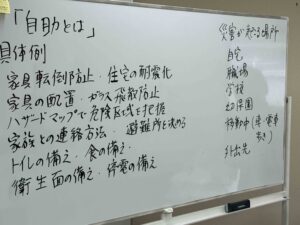 「自助とは」
具体例
家具転倒防止・住宅の耐震化
家具の配置・ガラス飛散防止
ハザードマップで危険区域を把握
家族との連絡方法・避難所を決める
トイレの備え・食の備え・
衛生面の備え・停電の備え
災害が起こる場所
自宅
職場
学校
幼保園
移動中(車・電車
歩き)
外出先